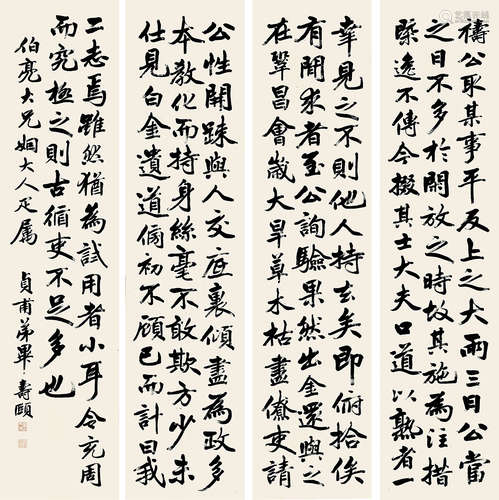 禱公取某事平反上之大雨三日公當
之日不多於閒放之時故其施為注措
槩逸不傳今掇其士大夫口道以熟者一
幸見之不則他人持去矣即俯拾俟
有閒求者至公詢驗果然出金還與之
在鞏昌會歲大旱草木枯盡僚吏請
公性開疎與人交底裏傾盡為政多
本教化而持身絲毫不敢欺方少未
仕見白金遺道傍初不顧已而計曰我
二志焉雖然猶為試用者小耳令充周
而究極之則古循吏不足多也
伯亮大兄姻大人疋属
貞甫弟畢壽頤